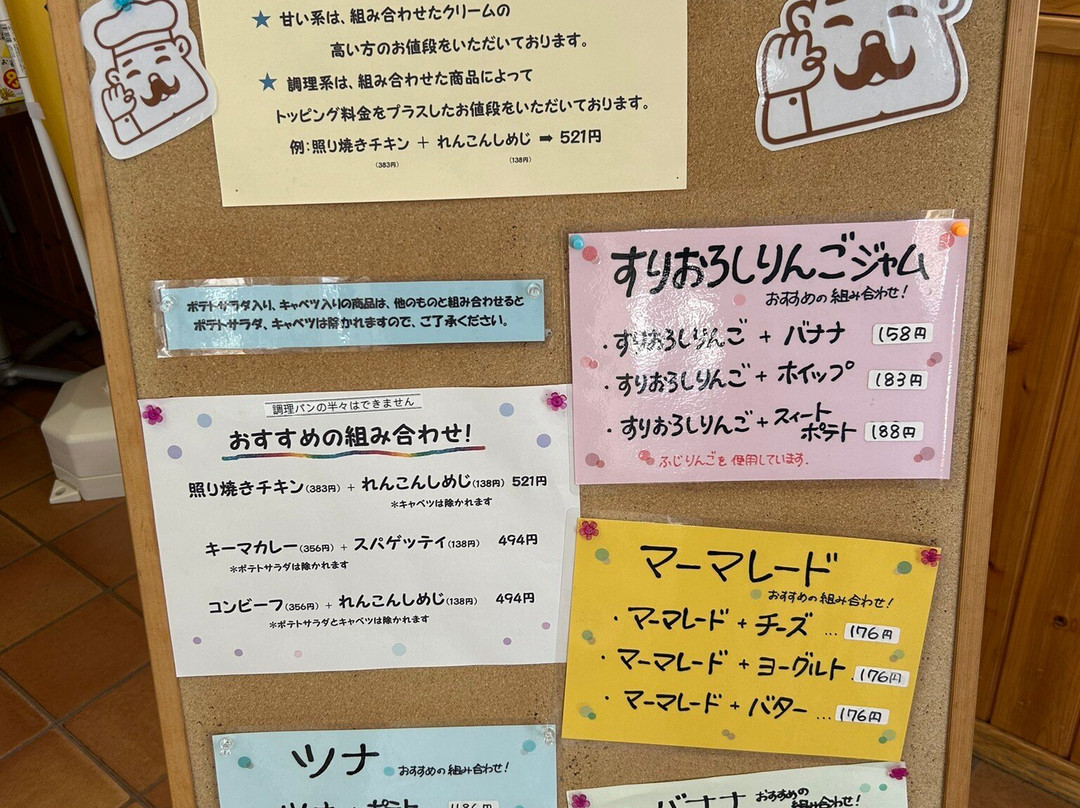 ★ 甘い系は、組み合わせたクリームの
高い方のお値段をいただいております。
★ 調理系は、組み合わせた商品によって
トッピング料金をプラスしたお値段をいただいております。
例：照り焼きチキン ＋ れんこんしめじ ➡ 521円
(383円) (138円)
ポテトサラダ入り、キャベツ入りの商品は、他のものと組み合わせると
ポテトサラダ、キャベツは除かれますので、ご了承ください。
すりおろしりんごジャム
おすすめの組み合わせ！
・すりおろしりんご + バナナ 158円
・すりおろしりんご + ホイップ 183円
・すりおろしりんご + スィート
ポテト 188円
ふじりんごを使用しています.
調理パンの半々はできません
おすすめの組み合わせ！
照り焼きチキン(383円) + れんこんしめじ(138円) 521円
＊キャベツは除かれます
キーマカレー(356円) + スパゲッティ(138円) 494円
＊ポテトサラダは除かれます
コンビーフ(356円) + れんこんしめじ(138円) 494円
＊ポテトサラダとキャベツは除かれます
マーマレード
おすすめの組み合わせ！
・マーマレード + チーズ … 176円
・マーマレード + ヨーグルト . 176円
・マーマレード + バター … 176円
ツナ おすすめの組み合わせ！
バナナ おすすめの
組み合わせ！